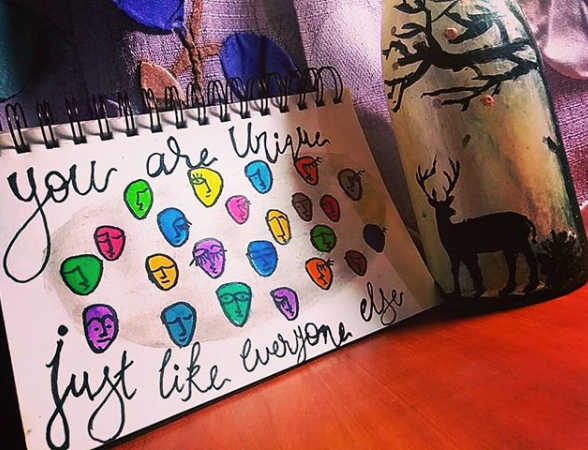 you are Unique
just like everyone else